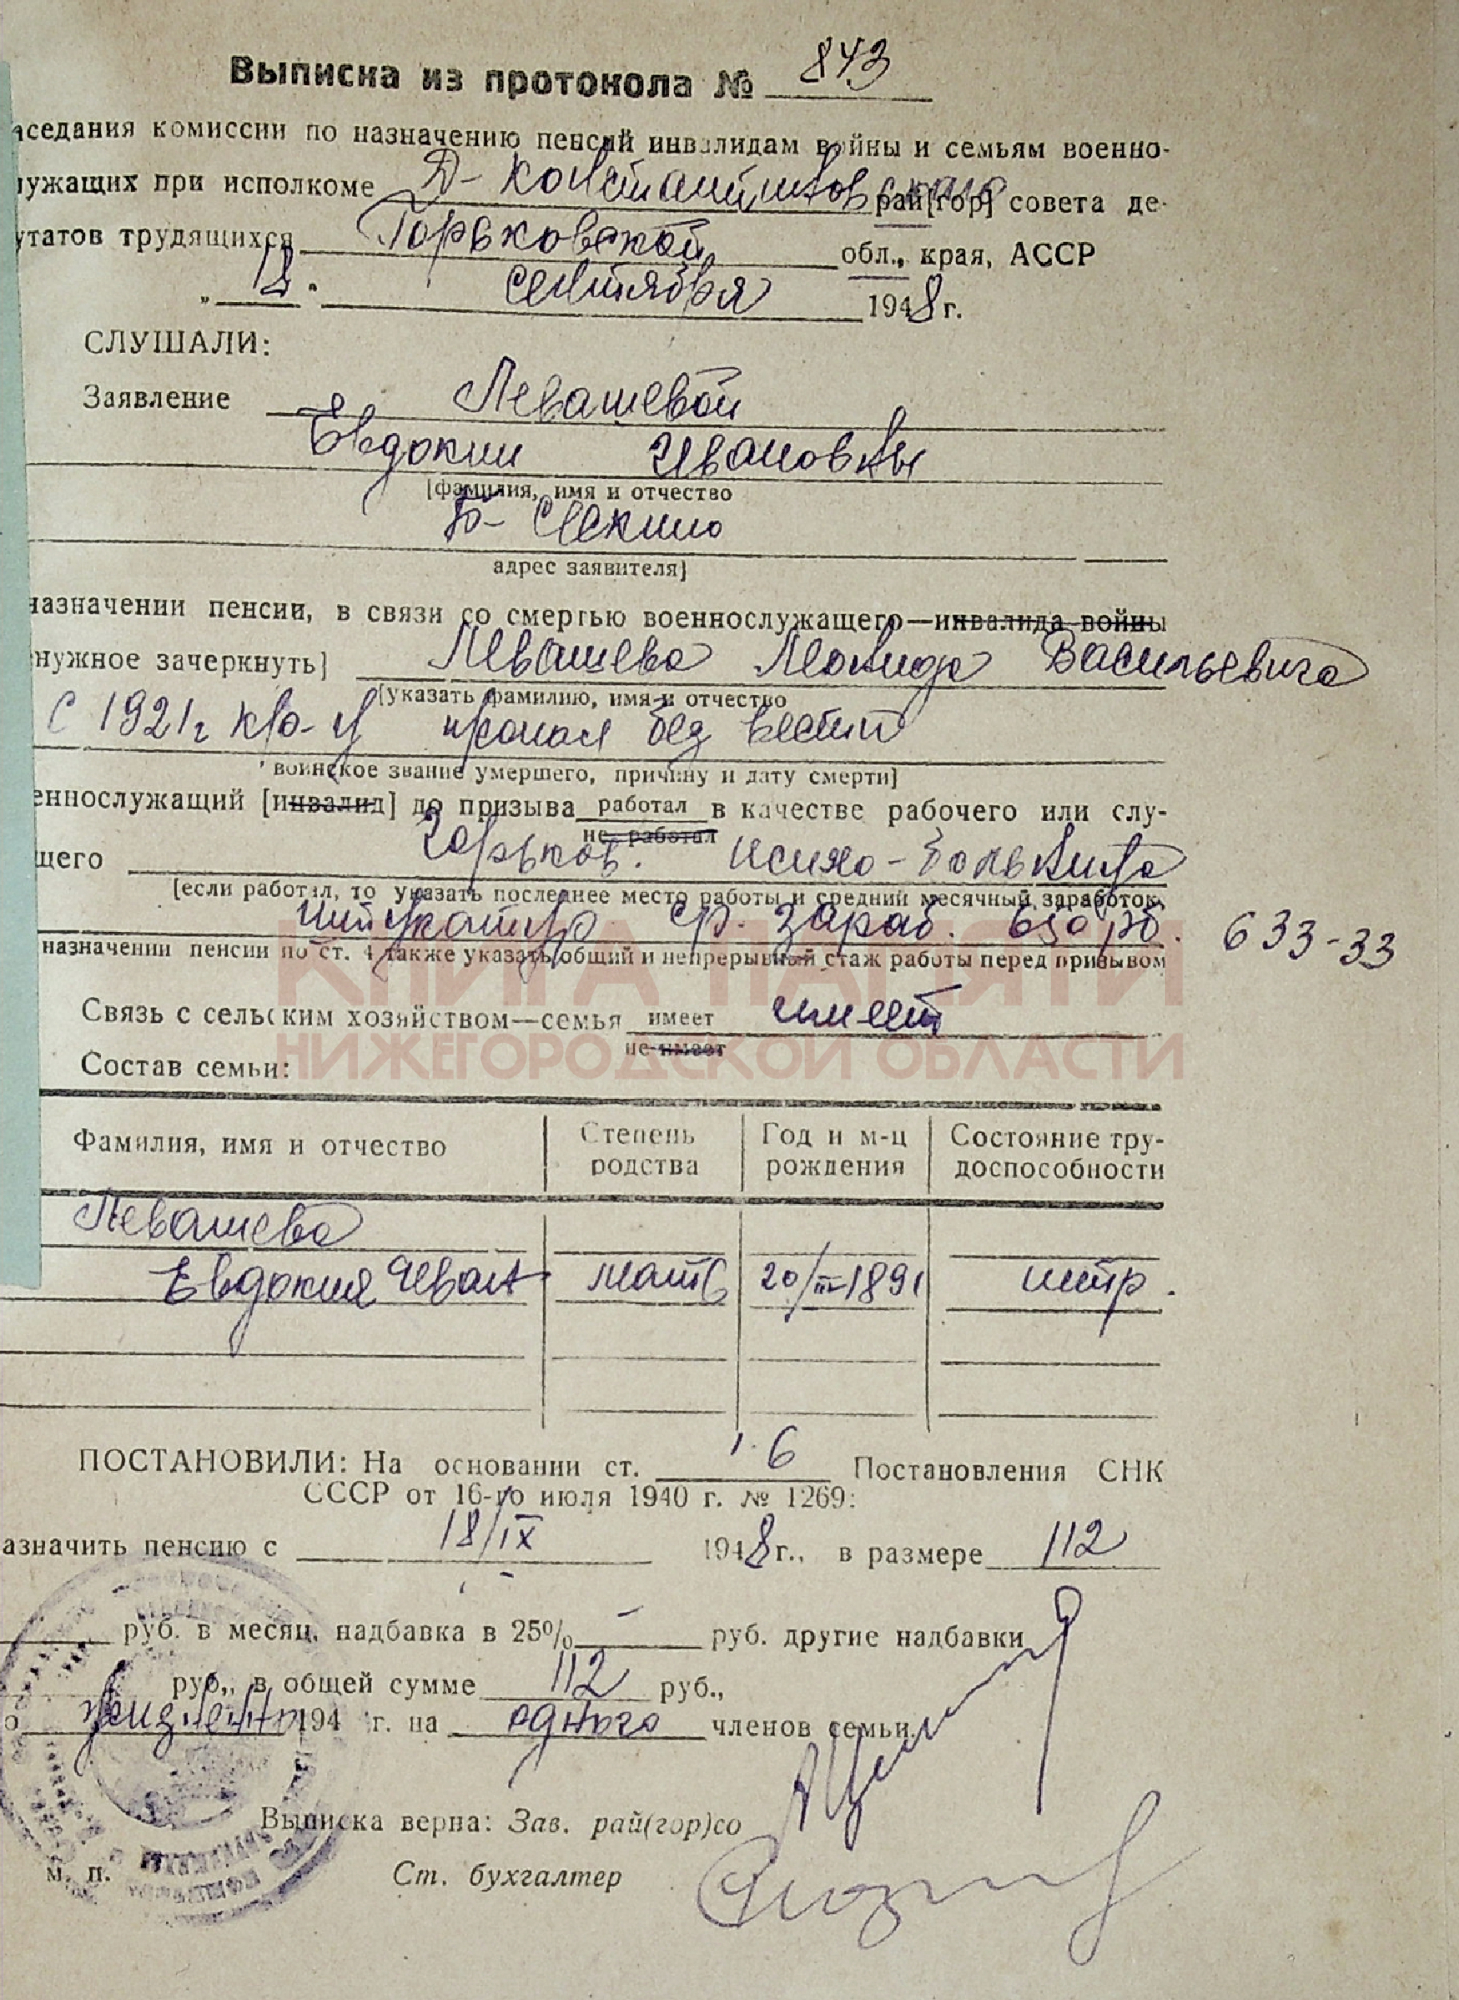 Выписка из протокола № 843
аседания комиссии по назначению пенсий инвалидам войны и семьям военно-
лужащих при исполкоме Д-Константиновского рай[гор] совета де-
утатов трудящихся Горьковской обл., края, АССР
„ 18 " сентября 1948 г.
СЛУШАЛИ:
Заявление Левашевой
Евдокии Ивановны
[фамилия, имя и отчество
Б-Сескино
адрес заявителя]
назначении пенсии, в связи со смертью военнослужащего—инвалида войны
нужное зачеркнуть] Левашева Леонида Васильевича
[указать фамилию, имя и отчество
С 1921г кр-ц пропал без вести
воинское звание умершего, причину и дату смерти]
еннослужащий [инвалид] до призыва работал в качестве рабочего или слу-
не работал
щего Горьков. психо-больница
[если работал, то указать последнее место работы и средний месячный заработок,
штукатур ср. зараб. 650 рб. 633-33
назначении пенсии по ст. 4 также указать общий и непрерывный стаж работы перед призывом
КНИГА ПАМЯТИ
Связь с сельским хозяйством—семья имеет имеет
не имеет
НИЖЕГОРОДСКОЙ ОБЛАСТИ
Состав семьи:
Фамилия, имя и отчество Степень родства Год и м-ц рождения Состояние тру-доспособности
Левашева
Евдокия Иван мать 20/III-1891
ПОСТАНОВИЛИ: На основании ст. 6 Постановления СНК
СССР от 16-го июля 1940 г. № 1269:
азначить пенсию с 18/IX 1948 г., в размере 112
руб. в месяц, надбавка в 25% – руб. другие надбавки
руб., в общей сумме 112 руб.,
о жизненно 194 г. на одного членов семьи
Выписка верна: Зав. рай(гор)со
м. п. Ст. бухгалтер